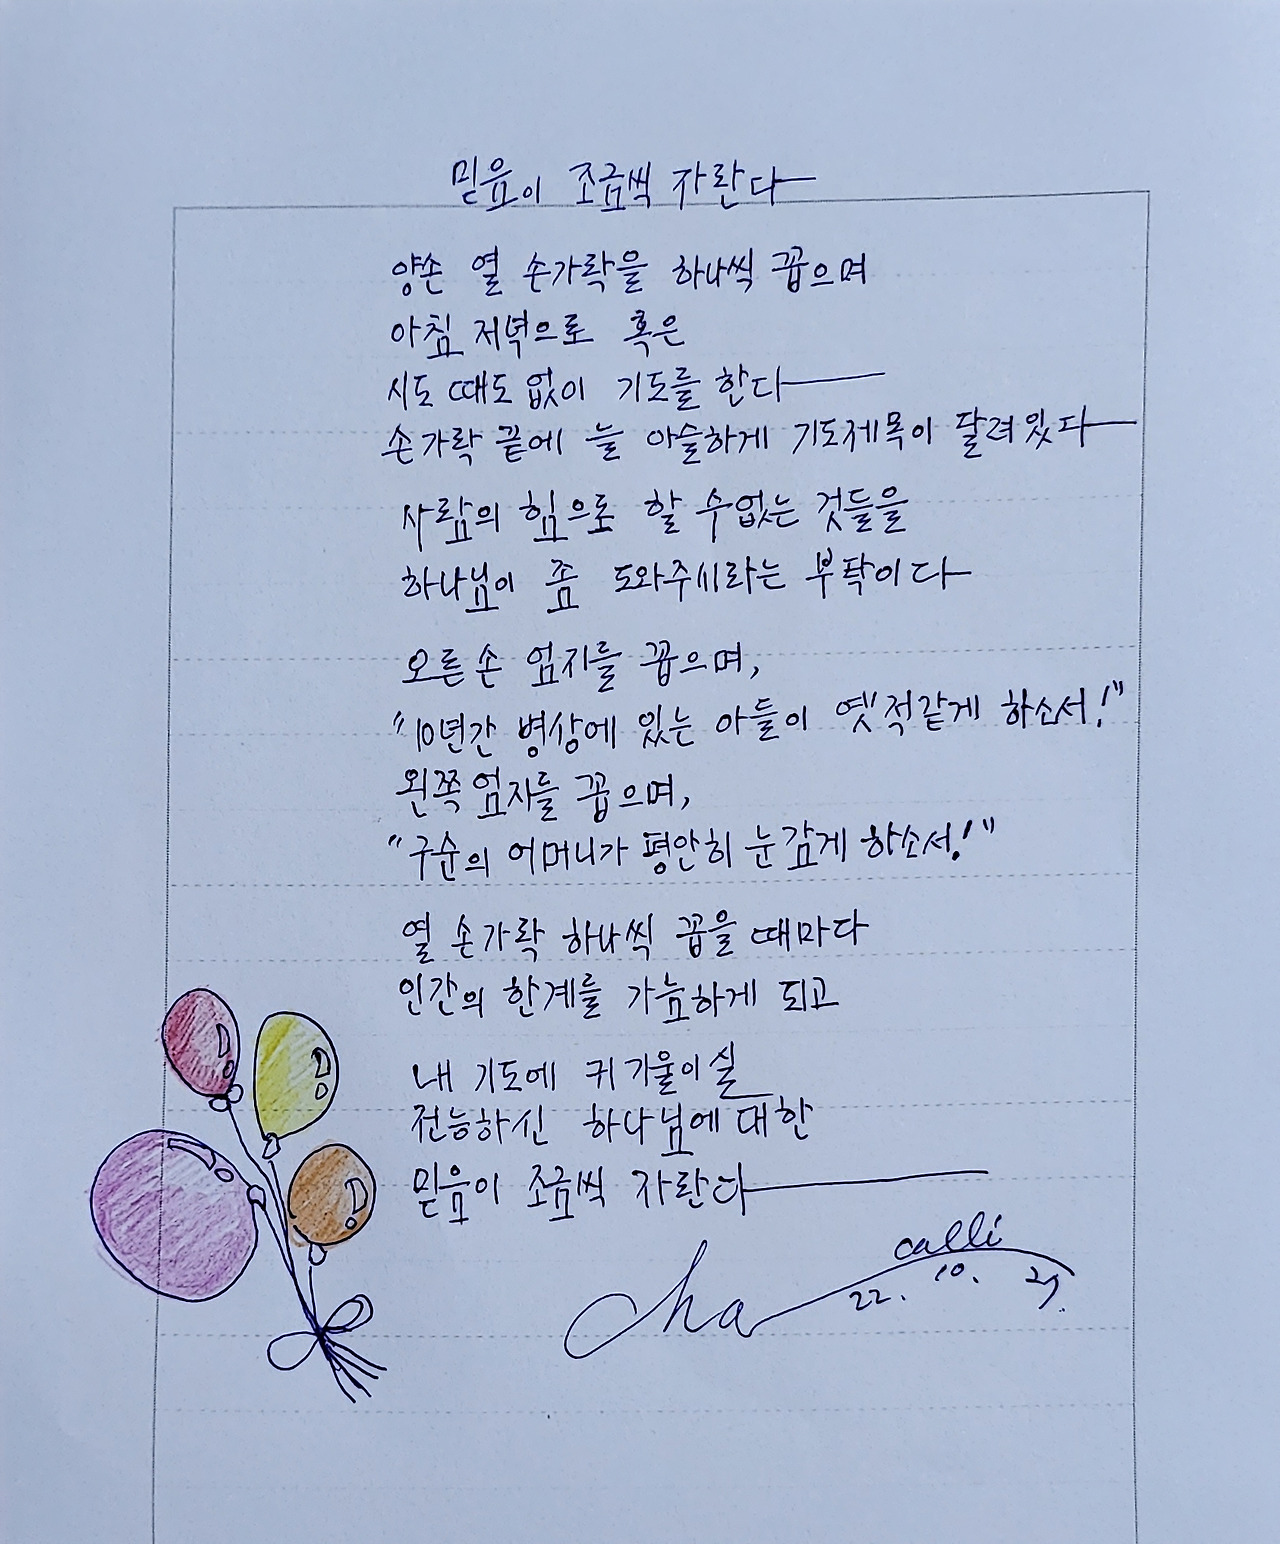 믿음이 조금씩 자란다
양손 열 손가락을 하나씩 꼽으며
아침 저녁으로 혹은
시도 때도 없이 기도를 한다
손가락 끝에 늘 아슬하게 기도제목이 달려있다
사람의 힘으로 할 수 없는 것들을
하나님이 좀 도와주시라는 부탁이다
오른손 엄지를 꼽으며,
"10년간 병상에 있는 아들이 옛적같게 하소서!"
왼쪽 엄지를 꼽으며,
"구순의 어머니가 평안히 눈감게 하소서!"
열 손가락 하나씩 꼽을 때마다
인간의 한계를 가늠하게 되고
내 기도에 귀 기울이실
전능하신 하나님에 대한
믿음이 조금씩 자란다
cha calli
22. 10.